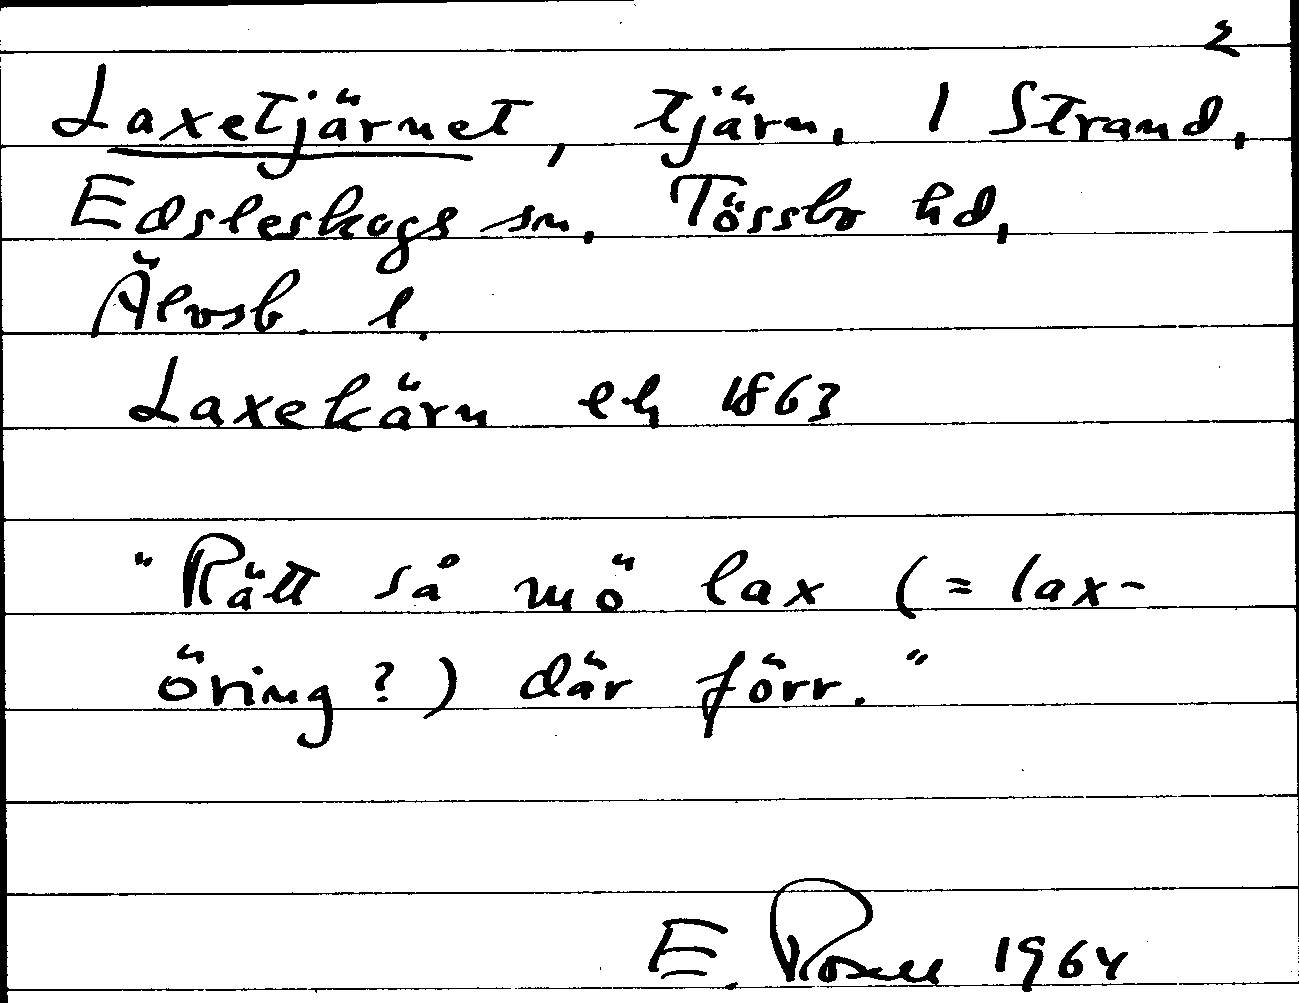 2
Laxetjärnet, tjärn, 1 Strand,
Edsleskogs sn, Tössbo hd,
Älvsb. l.
Laxekärn ek 1863
"Rätt så mö lax (= lax-
öring?) där förr."
E. Rosell 1964